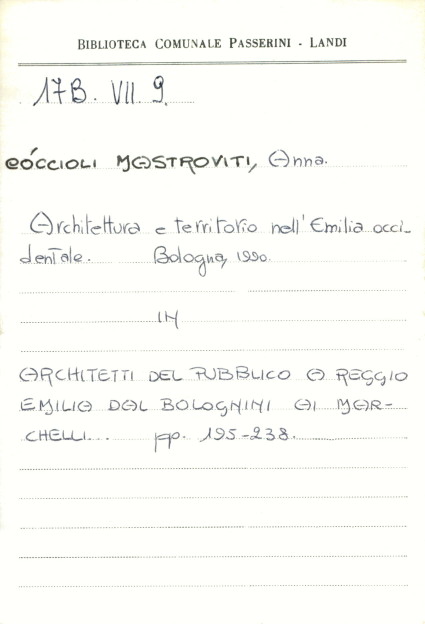 BIBLIOTECA COMUNALE PASSERINI - LANDI
17B. VII. 9.
COCCIOLI MASTROVITI, Anna.
Architettura e territorio nell'Emilia occi-
dentale. Bologna, 1990.
IN
ARCHITETTI DEL PUBBLICO A REGGIO
EMILIA DAL BOLOGNINI AI MAR-
CHELLI... pp. 195-238.